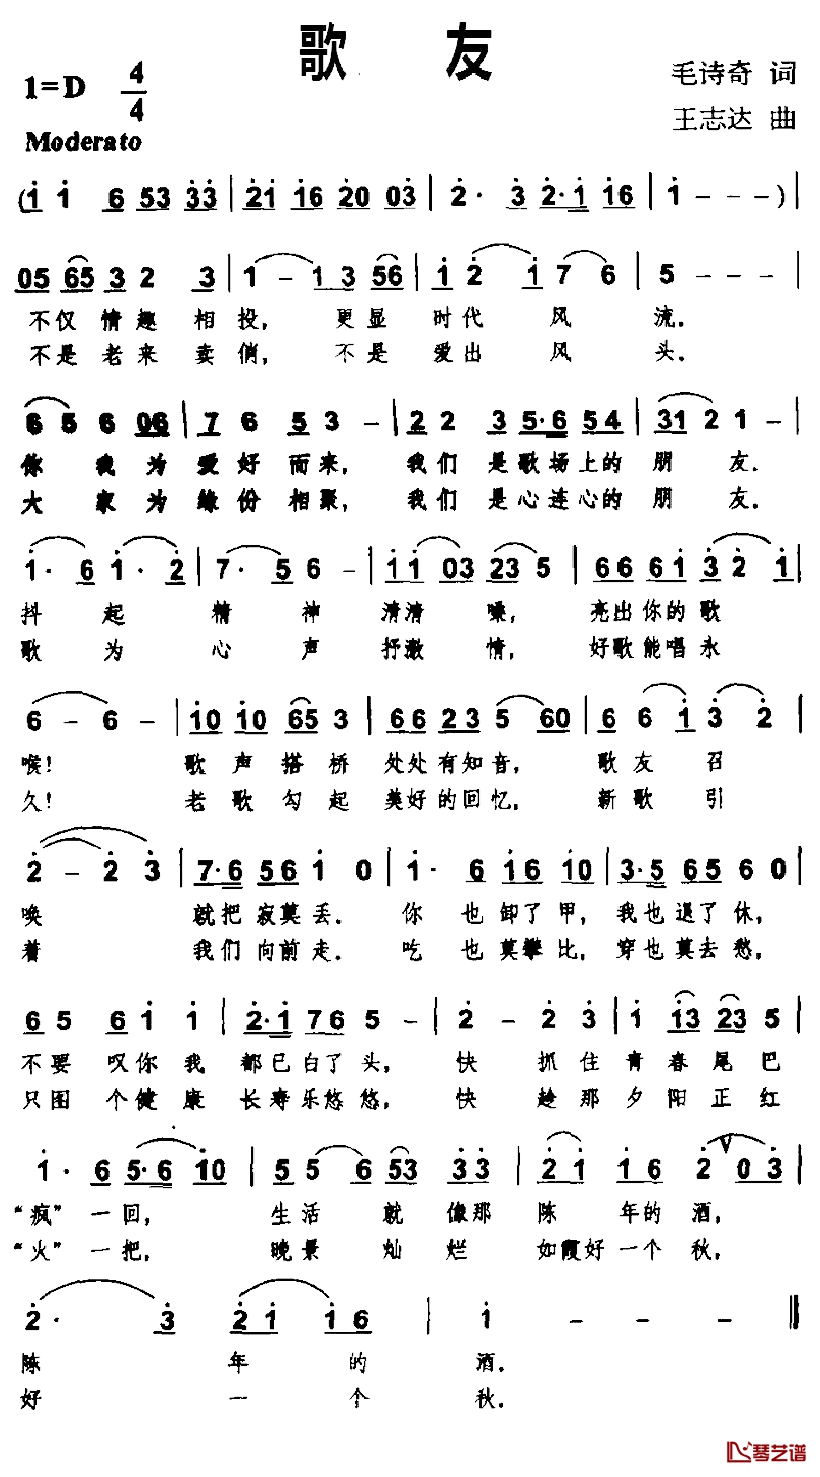 歌 友
1=D 4/4
毛诗奇 词
王志达 曲
Moderato
(1 1 6 53 33 | 21 16 20 03 | 2· 3 2·1 16 | 1 - - - ) |
05 65 3 2 3 | 1 - 1 3 56 | 1 2 1 7 6 | 5 - - - |
不仅 情趣 相投， 更显 时代 风 流．
不是 老来 卖俏， 不是 爱出 风 头．
6 5 6 06 | 7 6 5 3 - | 2 2 3 5·6 54 | 31 2 1 - |
你 我 为 爱好 而来， 我们 是歌场上的 朋 友．
大 家 为 缘份 相聚， 我们 是心连心的 朋 友．
1· 6 1· 2 | 7· 5 6 - | 11 03 23 5 | 66 61 3 2 1 |
抖 起 精 神 清清 嗓， 亮出你的歌
歌 为 心 声 抒激 情， 好歌能唱永
6 - 6 - | 10 10 65 3 | 66 23 5 60 | 6 6 1 3 2 |
喉！ 歌 声 搭 桥 处处有知音， 歌 友 召
久！ 老 歌 勾 起 美好的回忆， 新 歌 引
2 - 2 3 | 7·6 56 1 0 | 1· 6 16 10 | 3·5 65 60 |
唤 就把 寂莫 丢． 你 也 卸了 甲， 我也 退了 休，
着 我们 向前 走． 吃 也 莫攀 比， 穿也 莫去 愁，
6 5 6 1 1 | 2·1 76 5 - | 2 - 2 3 | 1 13 23 5 |
不要 叹你 我 都已白了 头， 快 抓住 青春尾巴
只图 个健 康 长寿乐悠 悠， 快 趁那 夕阳正红
1· 6 5·6 10 | 5 5 6 53 33 | 2 1 1 6 2 0 3 |
“疯” 一回， 生活 就 像那 陈 年的 酒，
“火” 一把， 晚景 灿 烂 如霞好 一个 秋，
2· 3 2 1 1 6 | 1 - - - ‖
陈 年 的 酒．
好 一 个 秋．
琴艺谱